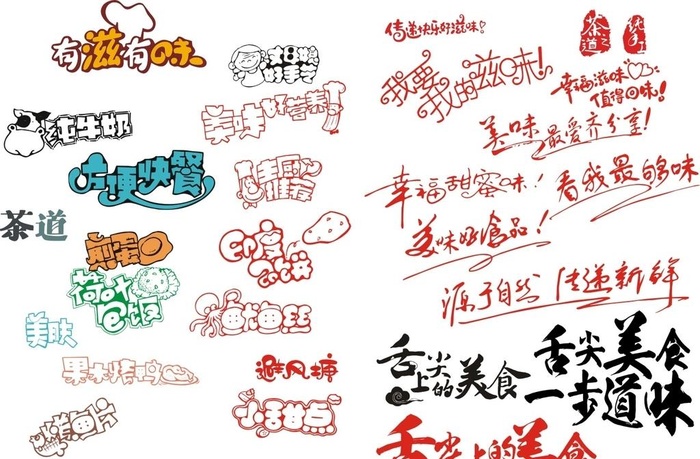 有滋有味
丈母娘
好手艺
纯牛奶
美味好营养
方便快餐
主厨
推荐
茶道
煎蛋
印度
荷叶
包饭
鱿鱼丝
美肤
果木烤鸡
避风塘
小甜点
鱼片
传递快乐好滋味!
茶之道
纯手工
我要我的滋味!
幸福滋味
值得回味!
美味最爱齐分享!
幸福甜蜜味!
看我最够味
美味好食品!
源于自然 传递新鲜
舌尖上的美食
舌尖美食
一步道味
舌尖上的美食